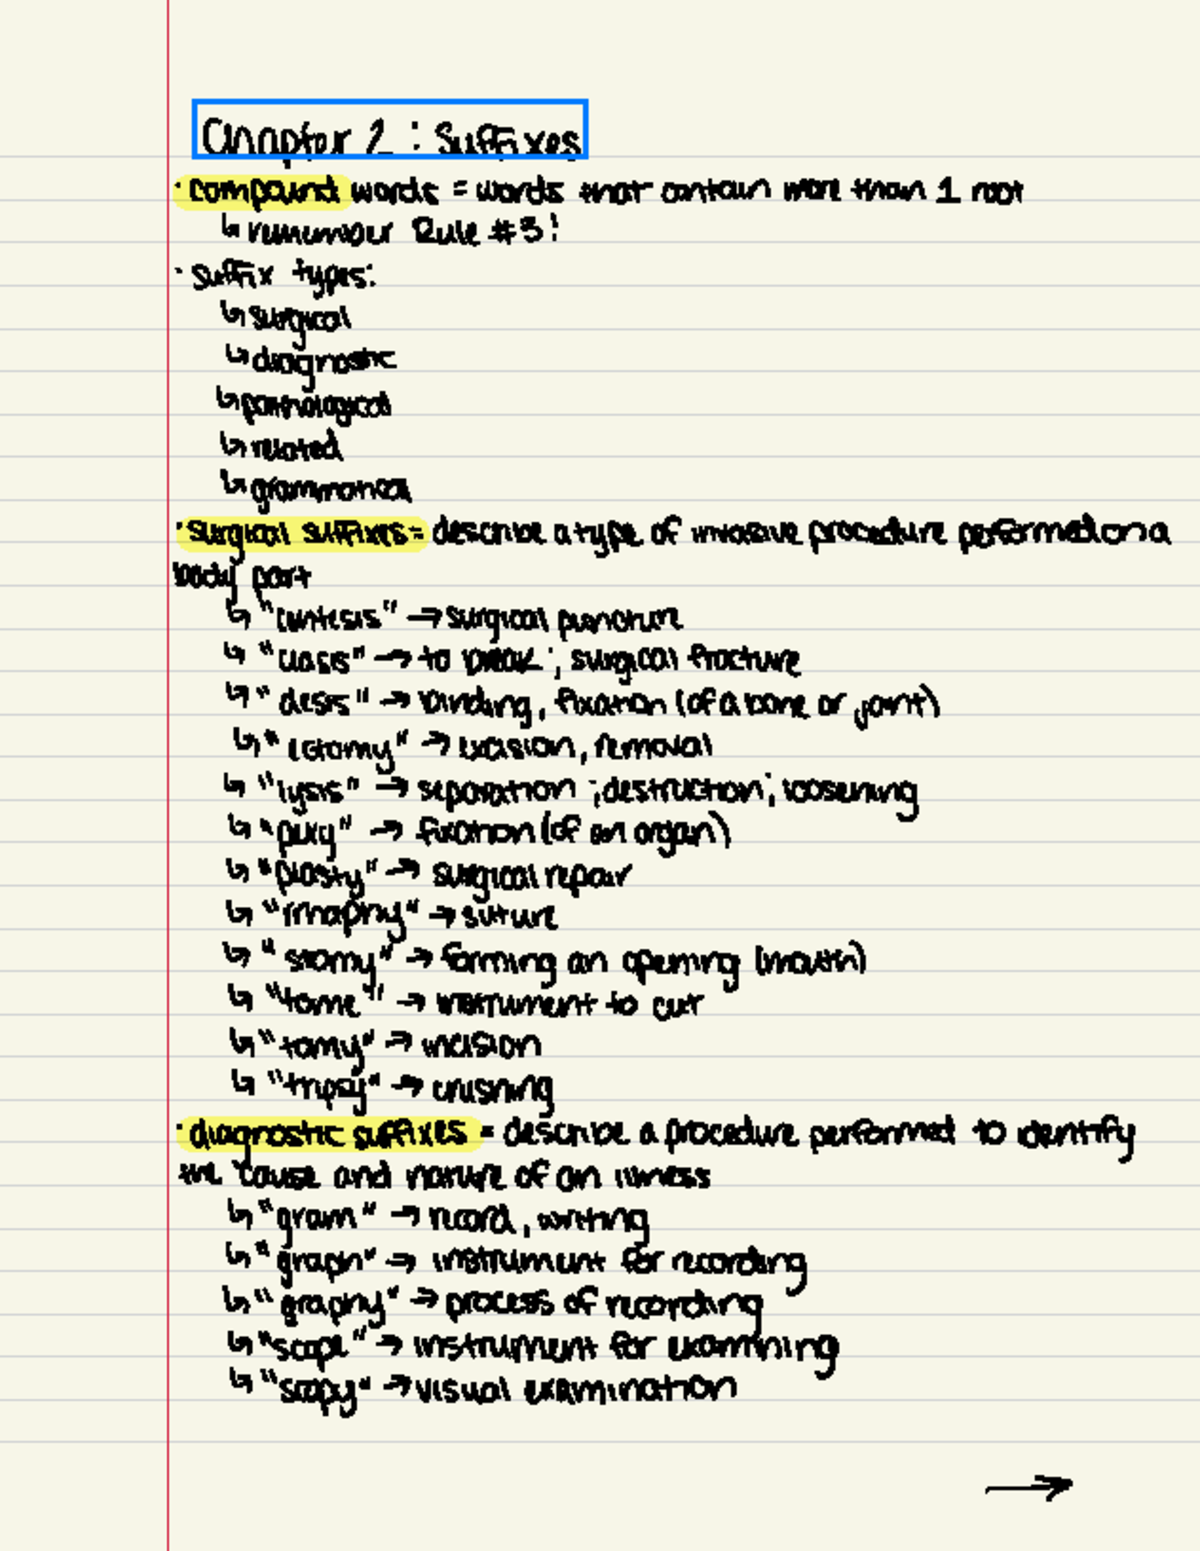 Chapter 2 : Suffixes
· compound words = words that contain more than 1 root
↳ remember Rule #3!
· suffix types:
↳ surgical
↳ diagnostic
↳ pathological
↳ related
↳ grammatical
· surgical suffixes = describe a type of invasive procedure performed on a
body part
↳ "centesis" → surgical puncture
↳ "clasis" → to break ; surgical fracture
↳ "desis" → binding, fixation (of a bone or joint)
↳ "ectomy" → excision, removal
↳ "lysis" → separation ; destruction ; loosening
↳ "pexy" → fixation (of an organ)
↳ "plasty" → surgical repair
↳ "rrhaphy" → suture
↳ "stomy" → forming an opening (mouth)
↳ "tome" → instrument to cut
↳ "tomy" → incision
↳ "tripsy" → crushing
· diagnostic suffixes = describe a procedure performed to identify
the cause and nature of an illness
↳ "gram" → record, writing
↳ "graph" → instrument for recording
↳ "graphy" → process of recording
↳ "scope" → instrument for examining
↳ "scopy" → visual examination
→